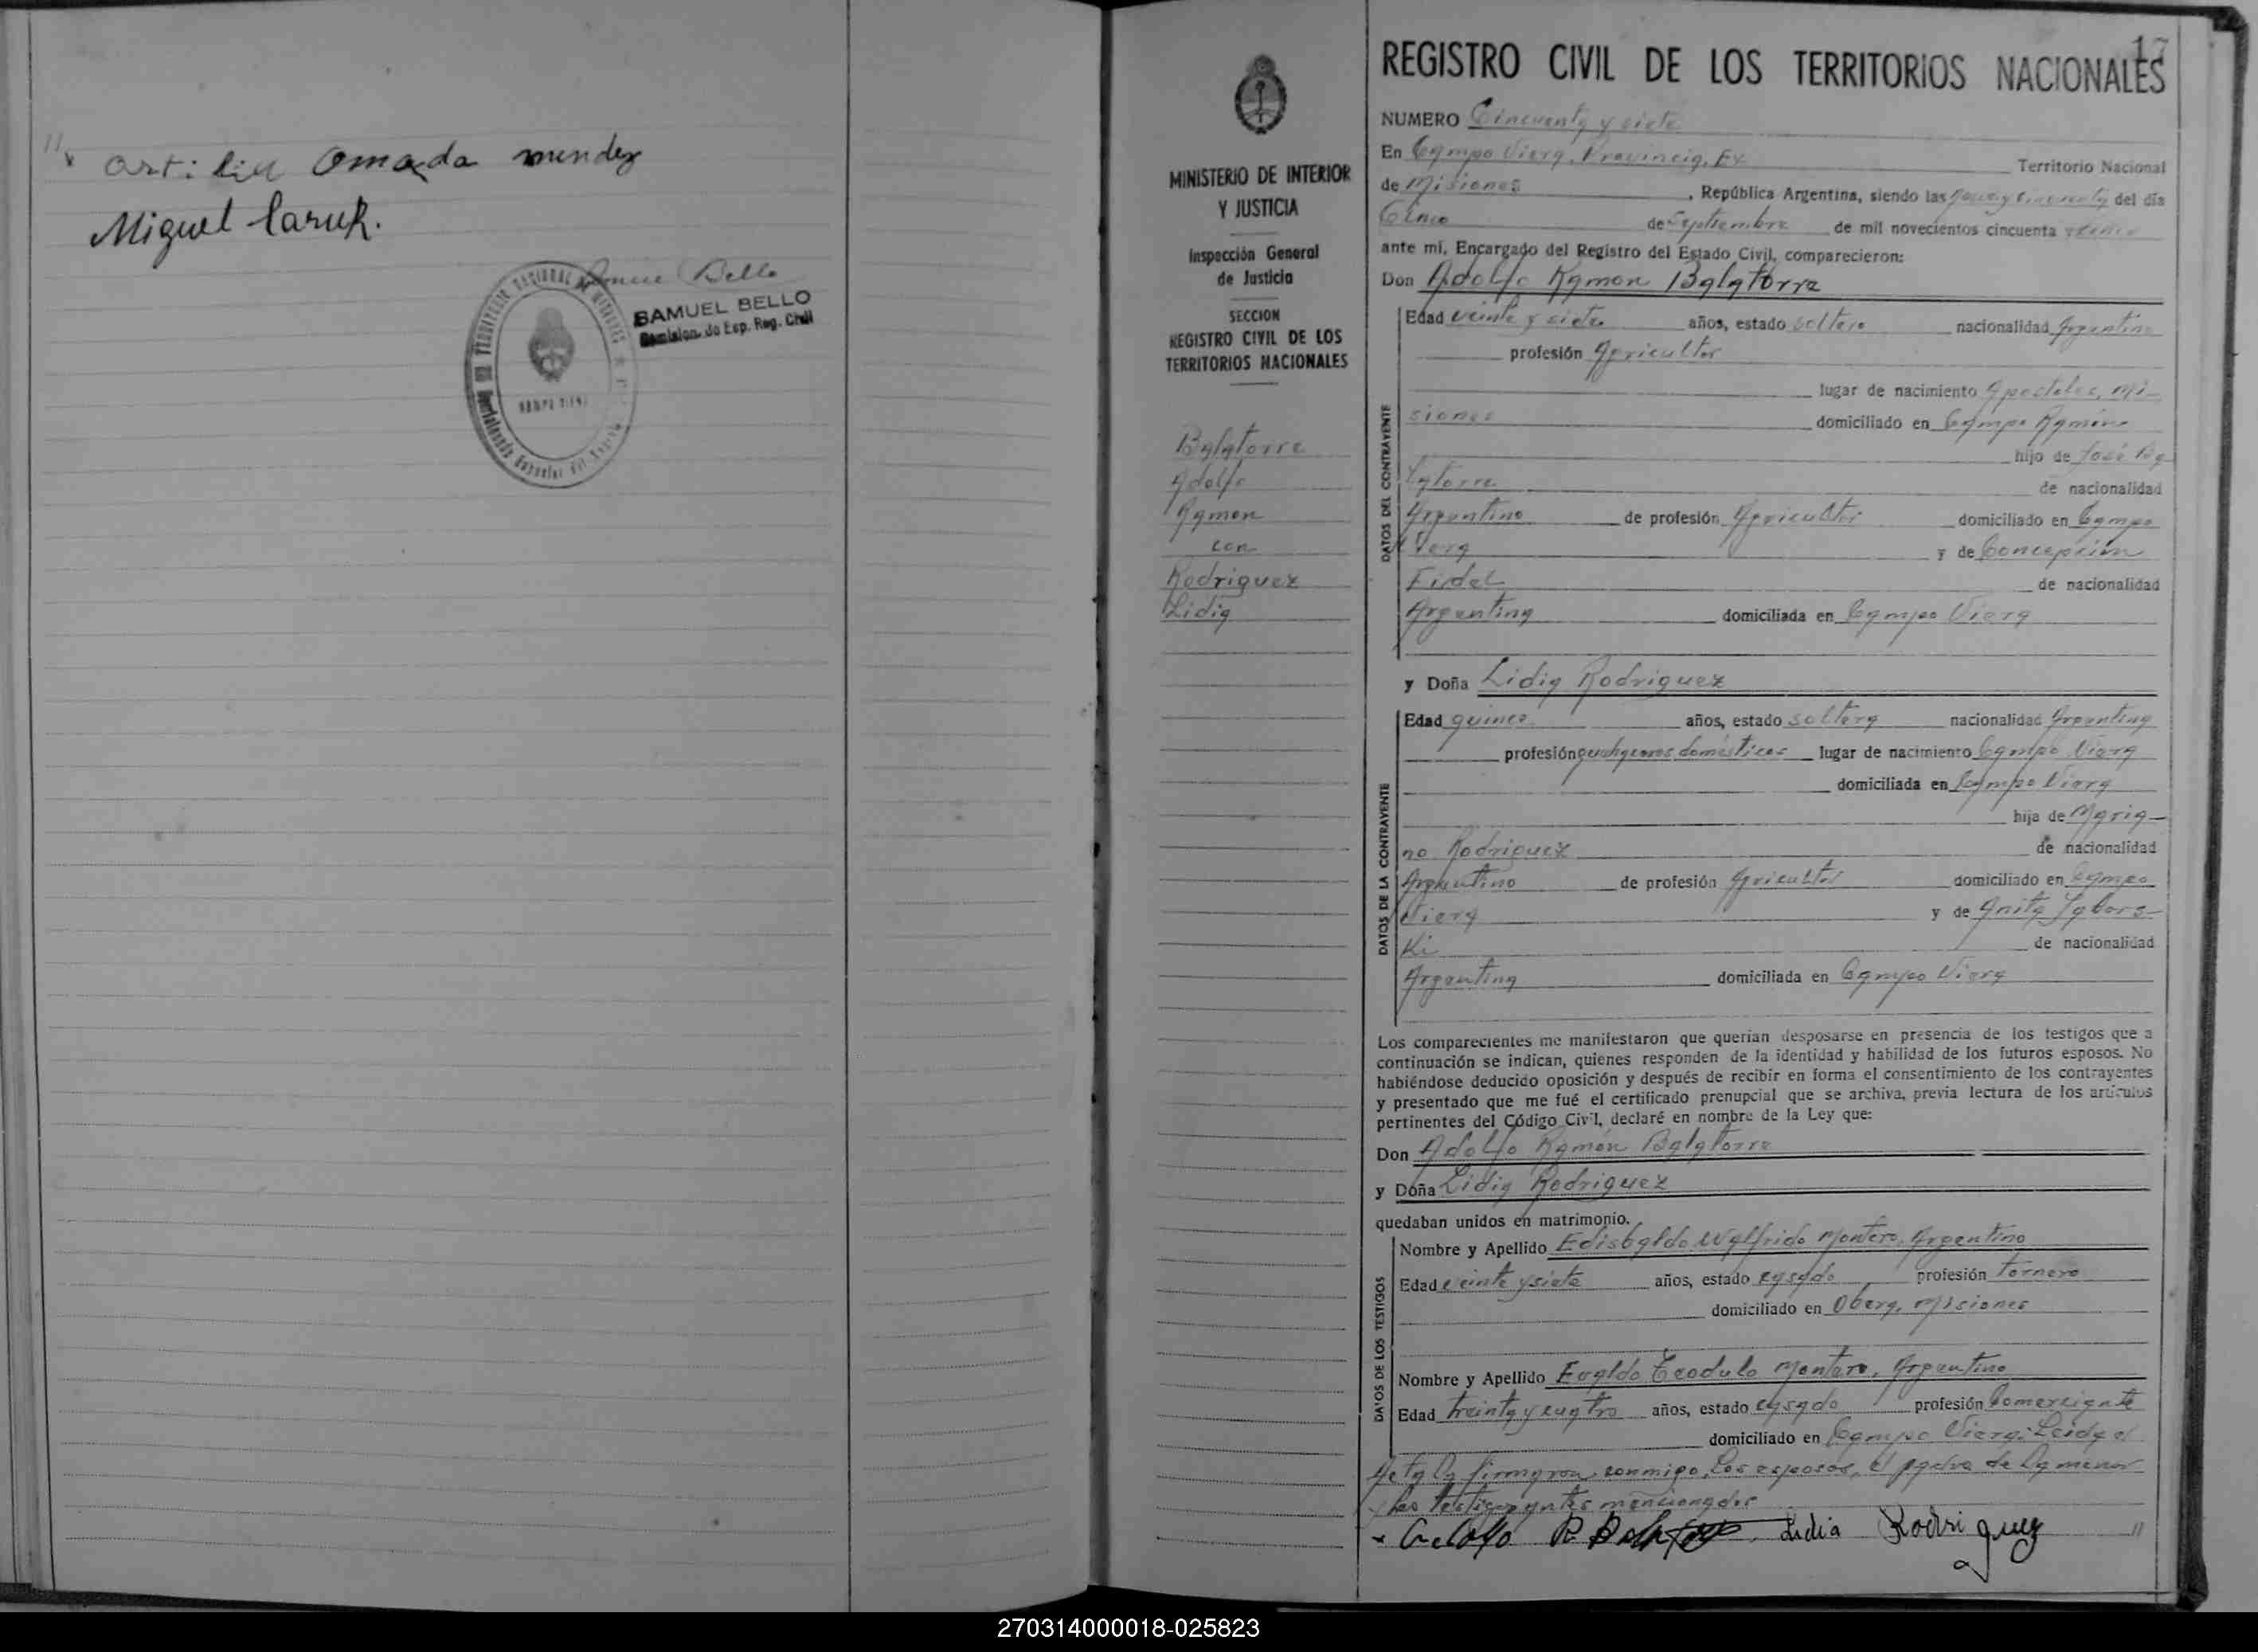 artilia Omada mendez
Miguel Caruk.
Bello
SAMUEL BELLO
REGISTRO CIVIL DE LOS TERRITORIOS NACIONALES
17
MINISTERIO DE INTERIOR
Y JUSTICIA
Inspección General
de Justicia
SECCION
REGISTRO CIVIL DE LOS
TERRITORIOS NACIONALES
Balatorre
Adolfo
Ramon
con
Rodriguez
Lidia
NUMERO Cincuenta y siete
En Campo Viera, Provincia, Ex Territorio Nacional
de Misiones, República Argentina, siendo las del día
Cinco de Septiembre de mil novecientos cincuenta
ante mí, Encargado del Registro del Estado Civil, comparecieron:
Don Adolfo Ramon Balatorre
DATOS DEL CONTRAYENTE
Edad veinte y siete años, estado soltero nacionalidad Argentino
profesión Agricultor
lugar de nacimiento Apostoles, Mi-
siones domiciliado en Campo Ramón
hijo de José Ba
latorre de nacionalidad
Argentino de profesión Agricultor domiciliado en Campo
Viera y de Concepción
Fidel de nacionalidad
Argentina domiciliada en Campo Viera
y Doña Lidia Rodriguez
DATOS DE LA CONTRAYENTE
Edad quince años, estado soltera nacionalidad Argentina
profesión quehaceres domésticos lugar de nacimiento Campo Viera
domiciliada en Campo Viera
hija de Maria-
no Rodriguez de nacionalidad
Argentino de profesión Agricultor domiciliado en Campo
Viera y de Anita
ki de nacionalidad
Argentina domiciliada en Campo Viera
Los comparecientes me manifestaron que querían desposarse en presencia de los testigos que a
continuación se indican, quienes responden de la identidad y habilidad de los futuros esposos. No
habiéndose deducido oposición y después de recibir en forma el consentimiento de los contrayentes
y presentado que me fué el certificado prenupcial que se archiva, previa lectura de los artículos
pertinentes del Código Civil, declaré en nombre de la Ley que:
Don Adolfo Ramón Balatorre
y Doña Lidia Rodriguez
quedaban unidos en matrimonio.
DATOS DE LOS TESTIGOS
Nombre y Apellido Edisbaldo Walfrido Montero, Argentino
Edad veinte y siete años, estado casado profesión tornero
domiciliado en Obera, Misiones
Nombre y Apellido Evaldo Teodulo Montero, Argentino
Edad treinta y cuatro años, estado casado profesión Comerciante
domiciliado en Campo Viera. Leida el
Acta la firmaron conmigo, los esposos, el padre de la menor
y los testigos antes mencionados
Adolfo R Lidia Rodriguez //
270314000018-025823